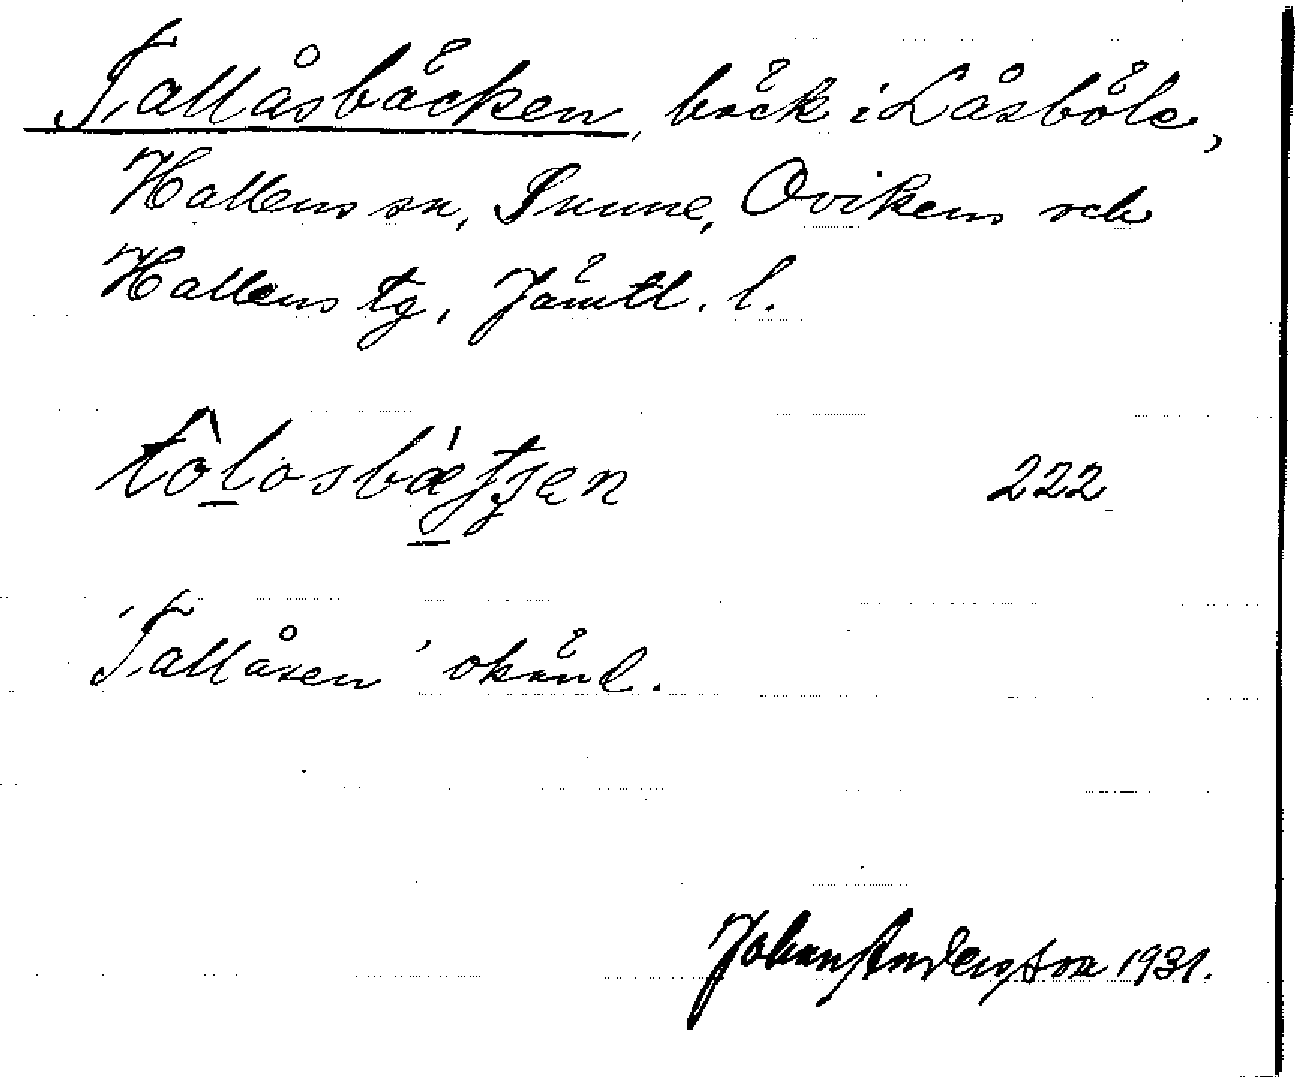 Tallåsbäcken, bäck i Låsböle,
Hallens sn, Sunne, Ovikens och
Hallens tg, Jämtl. l.
222
Tallåsen okänd.
Johan Andersson 1931.